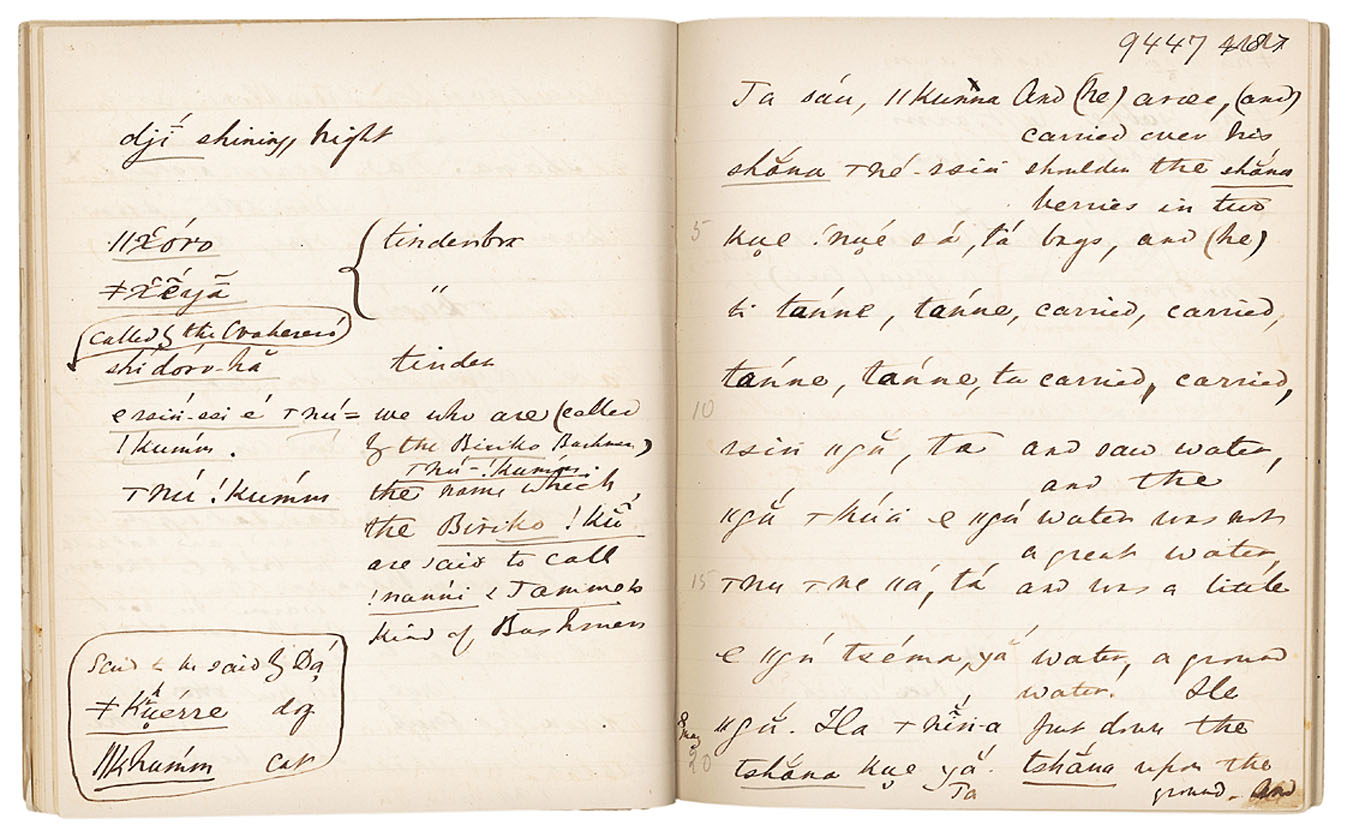 djí shining, bright
ǁχóro { tinderbox
ǂχḗyã "
called by the Ovaherero
shídóro-hă tinder
e rsiń-ssi é Tnú= we who are (called
!kumm. by the Biriko Bushmen)
Tnú-!kumm.
Tnú !kumm the name which
the Biriko !kũ
are said to call
!nanni & Tamme's
kind of Bushmen
Said to be said by Dạ́
ǂKụérre dog
cat
9447
Ta sáu, ǁkunna And (he) arose, (and)
carried over his
shắna Tné-rsiń shoulder the shắna
berries in two
5 kụe !nụé e á, tá bags, and (he)
ti tańne, tańne, carried, carried,
tańne, tańne, ta carried, carried,
10
rsiń ǁgŭ́, ta and saw water,
and the
ǁgŭ́ Tkúi e ǁgú water was not
a great water,
15 Tnu Tne ǁá, tá and was a little
e ǁgú tséma, yắ water, a ground
water. He
ǁgŭ́. Ha Tnĭ́n-a put down the
20 tshắna kụe yắ. tshắna upon the
Ta ground. And